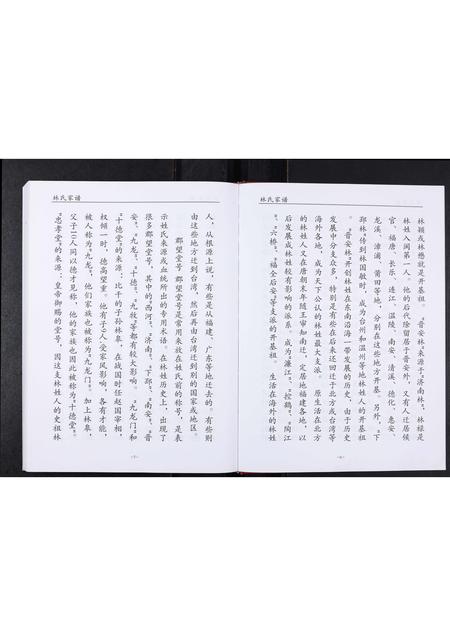 林氏家谱
林颖或林懋就是开基祖。“晋安林”来源于“济南林”，林禄是
林姓入闽第一人。他的后代除留居于晋安外，又有人迁居候
官、福唐、长乐、连江、温陵、南安、清溪、德化、惠安、
龙溪、漳浦、莆田等地，分别在这些地方开基。另外，“下
邳林”传到林国敏时，成为台州和温州等地林姓人的开基祖。
“晋安林”开创林姓在东南沿海一带发展的历史，由于历史
发展中分支众多，特别是有些在后来还回迁于北方或台湾等
海外各地，成为天下公认的林姓最大支派。原生活在北方
的林姓人又在唐朝末年随王审知南迁，定居地福建各地，以
后发展成林姓较有影响的派系。成为“濂江”、“控鹤”、“陶江
”、“六桥”、“福全后安”等支派的开基祖。生活在海外的林姓
林氏家谱
人，从根源上说，有些是从福建、广东等地迁去的。有些则
由这些地方迁到台湾，然后再由台湾迁到别的国家或地区。
郡望堂号 郡望堂号是常用来放在姓氏前的称号，是表
示姓氏来源或血统所出的专用术语。在林姓历史上，出现了
很多郡望堂号，其中的“西河”、“济南”、“下邳”、“南安”、“晋
安”、“九龙”、“十德”、“九牧”等都有较大影响。“九龙门”和
“十德堂”的来源：比干的子孙林皋，在战国时任赵国宰相，
权倾一时，德高望重。他有子9人，受家风影响，各有才能，
被人称为“九龙”，他们家族也被称为“九龙门”。加上林皋，
父子10人同以德才见称，他的家族也因此被称为“十德堂”。
“忠孝堂”的来源：皇帝御赐的堂号，因这支林姓人的史祖林